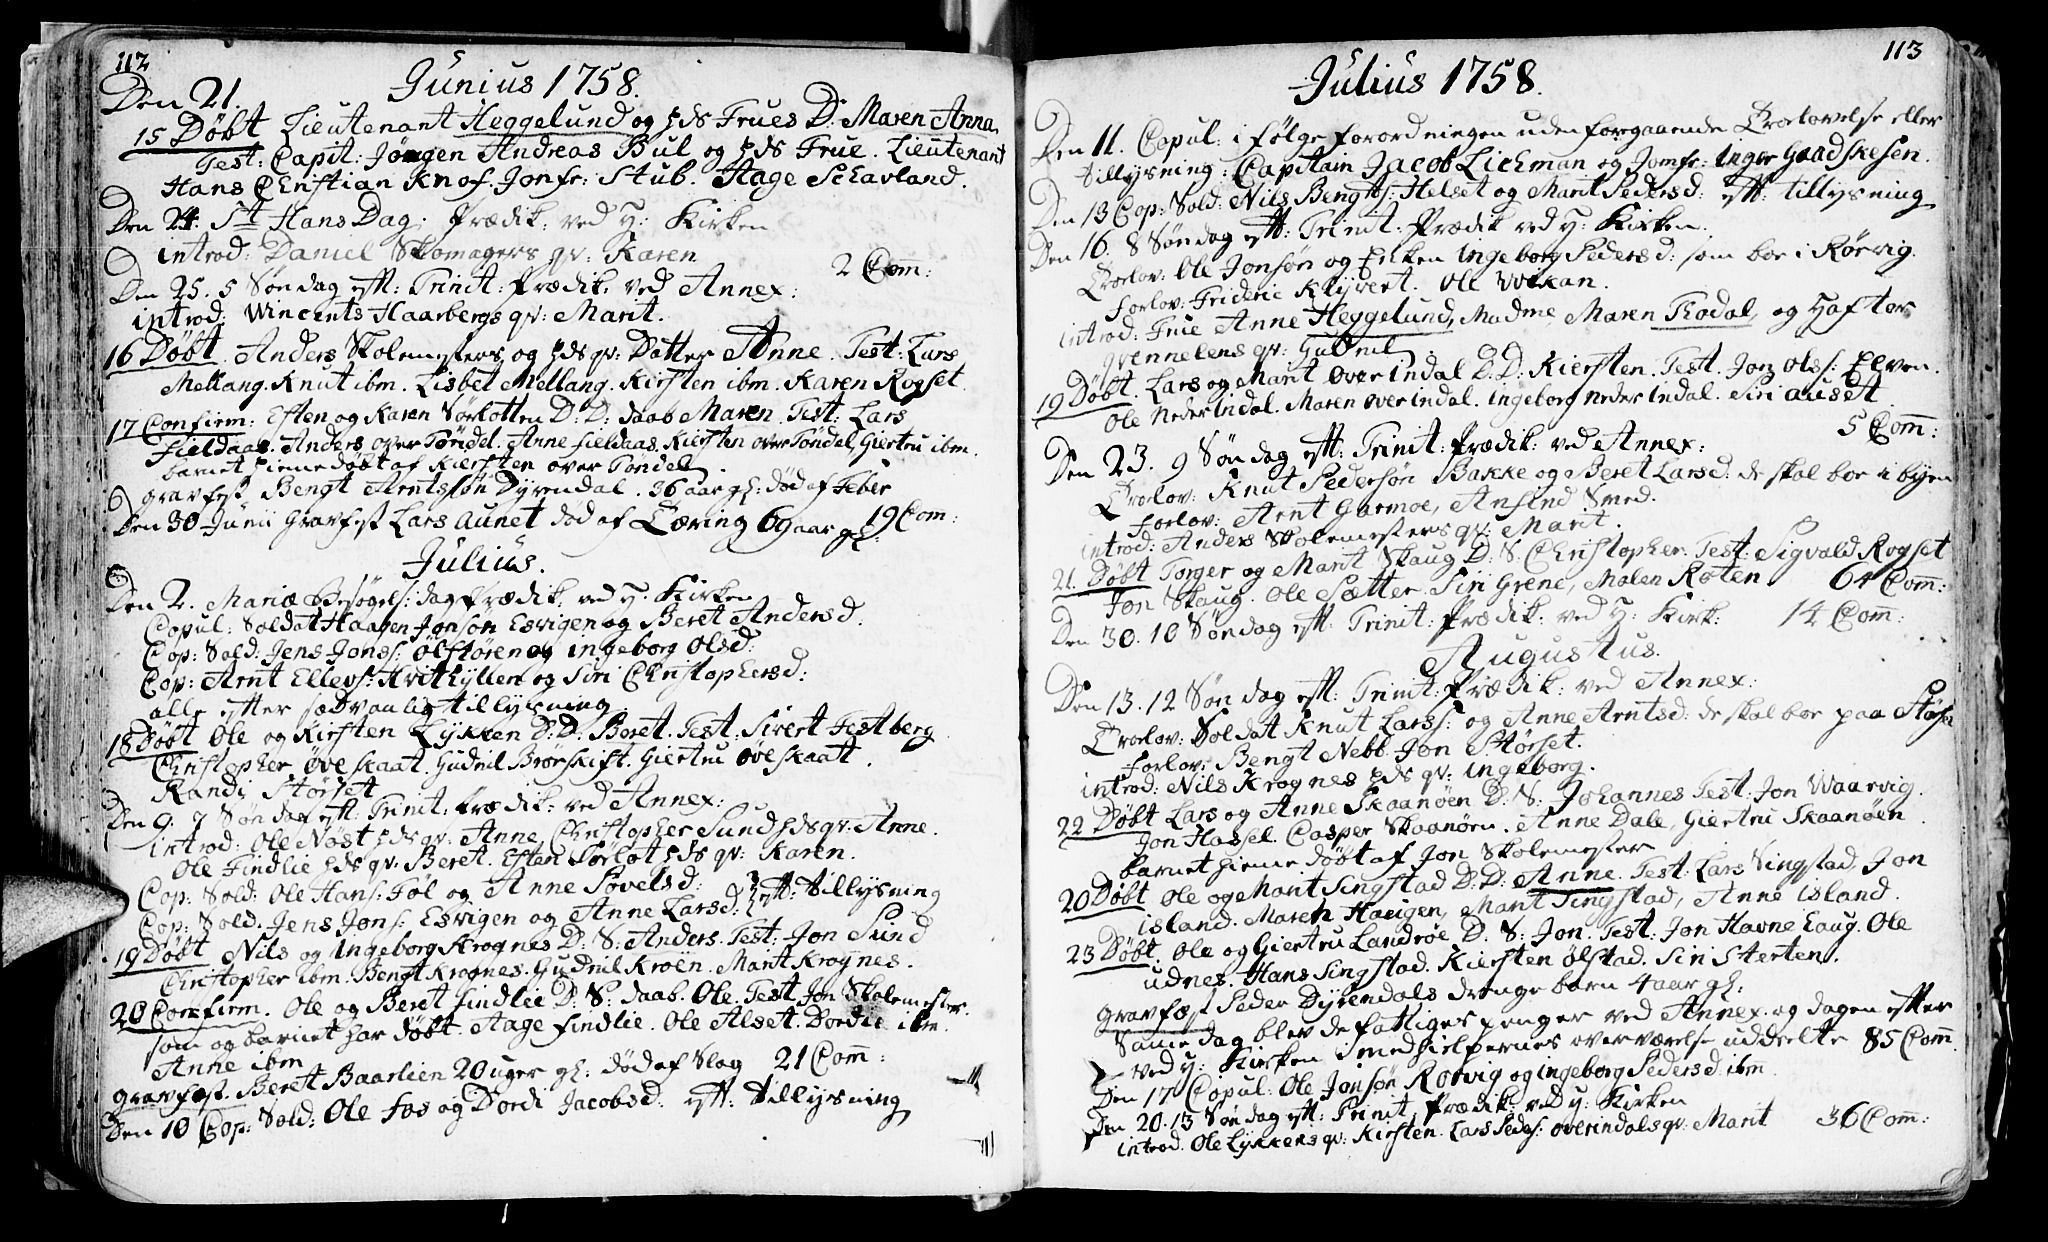 112
Junius 1758.
Den 21.
15 Døbt Lieutenant Heggelund og hds Frues D. Maren Anna
Test: Capit: Jørgen Andreas Bul og hds Frue. Lieutenant
Hans Christian Knof. Jonfr: Stub. Hage Schavland.
Den 24. St Hans Dag. Prædik: ved H: Kirken
introd: Daniel Skomagers qv: Karen
2 Com:
Den 25. 5 Søndag eft: Trinit: Prædik: ved Annex:
introd: Wincents Haarbergs qv: Marit.
16 Døbt. Anders Skolemesters og hds qv: Datter Anne. Test: Lars
Mellang. Knut ibm. Lisbet Mellang. Kirsten ibm. Karen Rogset.
17 Confirm: Esten og Karen Sørlotten D: D: daab Maren Test: Lars
Fieldaas. Anders over Tøndel. Anne fieldaas. Kiersten over Tøndel, Giertru ibm.
barnet hieme døbt af Kiersten over Tøndel
gravfest Bengt Arntssøn Dyrendal. 36 aar gl: død af Feber
19 Com:
Den 30 Junii Gravfest Lars Aunet død af Tæring 69 aar gl:
Julius.
Den 2. Mariæ Besøgels: dag Prædik: ved H: Kirken
Copul: Soldat Haagen Jonsøn Esvigen og Beret Andersd.
Cop: Sold: Jens Jons: Ølstøren og ingeborg Olsd:
Cop: Arnt Ellevs: Hvithyllen og Siri Christophersd:
alle efter sædvanlig tillysning
18 Døbt Ole og Kirsten Lykken D: D: Beret. Test: Sivert Festberg
Christopher Øveskaat. Gudnil Brørskift. Giertru Øveskaat.
Randi Størset
Den 9. 7 Søndag eft: Trinit: Prædik: ved Annex:
introd: Ole Nøst hds qv: Anne Christopher Sund hds qv: Anne.
Ole Findlie hds qv: Beret. Esten Sørlot hds qv: Karen.
Cop: Sold: Ole Hans: Føl og Anne Sovelsd:
Cop: Sold. Jens Jons: Esvigen og Anne Larsd: eft: tillysning
19 Døbt Nils og Ingeborg Krognes D: S: Anders. Test: Jon Sund
Christopher ibm. Bengt Krognes. Gudnil Kroen. Marit Krognes.
20 Confirm. Ole og Beret findlie D: S: daab. Ole. Test Jon Skolemester.
som og barnet har døbt. Aage findlie. Ole Alset. Dordie ibm.
Anne ibm
gravfest. Beret Baarlien 20 uger gl: død af Slag 21 Com:
Den 10 Cop: Sold: Ole fos og Dordi Jacobsd: eft: tillysning
113
Julius 1758.
Den 11. Copul: i følge forordningen uden foregaaende Trolovelse eller
tillysning: Capitain Jacob Lichman og Jomfr: Inger Gaadskesen.
Den 13 Cop: Sold: Nils Bengts: Helset og Marit Pedersd: eft: tillysning
Den 16. 8 Søndag eft: Trinit: Prædik ved H: Kirken.
Trolov: Ole Jonsøn og Enken Ingeborg Pedersd: som boe i Rørvig.
Forlov: Frideric Klyvert. Ole Wekan.
introd: Frue Anne Heggelund, Madme Maren Rodal, og Haftor
Grennelens qv: Gudnil
19 Døbt. Lars og Marit Over Indal D. D: Kiersten. Test. Jon Ols: Elven.
Ole Neder Indal. Maren over indal. ingeborg neder Indal. Siri auset
5 Com:
Den 23. 9 Søndag eft: Trinit: Prædik: ved Annex:
Trolov: Knut Pedersøn Bakke og Beret Larsd: de skal boe i byen
Forlov: Arnt Garmoe, Smed.
introd: Anders Skolemesters qv: Marit.
21. Døbt Torger og Marit Skaug D: S: Christopher. Test: Sigvald Rogset
Jon Skaug. Ole Sætter. Siri Grene, Malen Røten 64 Com:
Den 30. 10 Søndag eft: Trinit: Prædik: ved H: Kirk: 14 Com:
Augustus.
Den 13. 12 Søndag eft: Trinit: Prædik: ved Annex:
Trolov: Soldat Knut Lars: og Anne Arntsd: de skal boe paa
Forlov: Bengt Nebb. Jon Størset.
introd: Nils Krognes hds qv: ingeborg.
22 Døbt Lars og Anne Skaanøen D: S: Johannes Test: Jon Waarvig.
Jon Hassel. Casper Skaanøen. Anne Dale, Giertru Skaanøen
barnet hieme døbt af Jon Skolemester
20 Døbt Ole og Marit Singstad D: D: Anne. Test: Lars Singstad, Jon
island. Maren Haugen, Marit Singstad, Anne island.
23 Døbt. Ole og Giertru Landrøe D. S: Jon. Test: Jon Havne haug. Ole
udnes. Hans Singstad. Kiersten Ølstad. Siri Sterten.
gravfæst Peder Dyrendals drenge barn 4 aar gl:
Samme dag blev de fattiges penger ved Annex. og dagen efter
ved H: Kirken i medhielpernes overværelse uddeelte 85 Com
Den 17 Copul: Ole Jonsøn Rørvig og ingeborg Pedersd: ibm.
Den 20. 13 Søndag eft: Trinit: Prædik: ved H: Kirken
introd. Ole Lykkens qv: Kirsten. Lars Peds: overindals qv: Marit 36 Com: